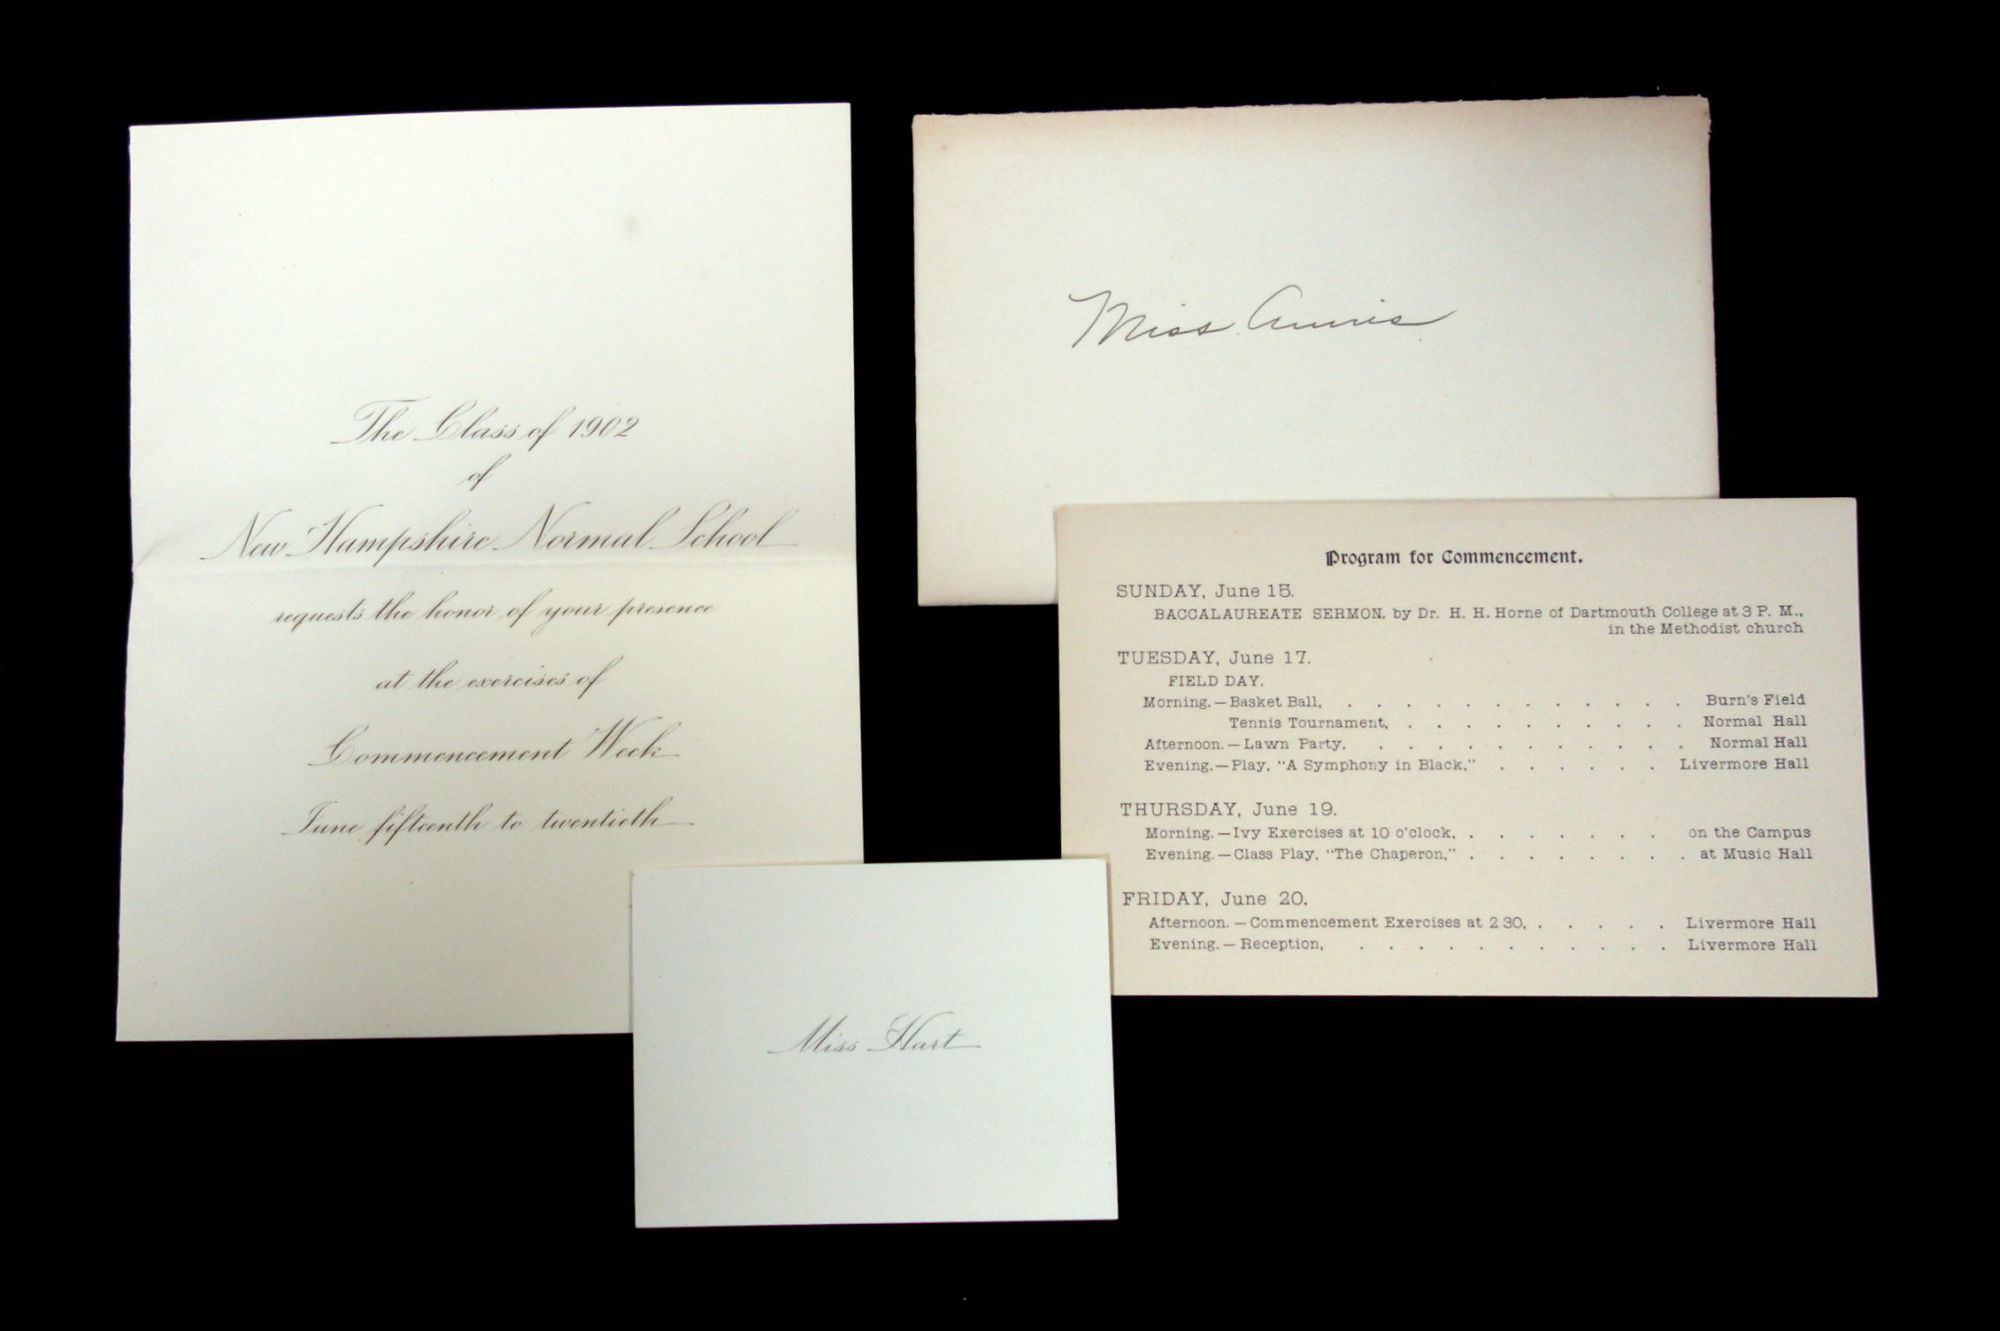 The Class of 1902
of
New Hampshire Normal School
requests the honor of your presence
at the exercises of
Commencement Week
June fifteenth to twentieth
Miss Annis
Program for Commencement.
SUNDAY, June 15.
BACCALAUREATE SERMON, by Dr. H. H. Horne of Dartmouth College at 3 P. M.,
in the Methodist church
TUESDAY, June 17.
FIELD DAY.
Morning.—Basket Ball, . . . . . . . . . . . . Burn's Field
Tennis Tournament, . . . . . . . . . . Normal Hall
Afternoon.—Lawn Party, . . . . . . . . . . . Normal Hall
Evening.—Play, "A Symphony in Black," . . . . . . Livermore Hall
THURSDAY, June 19.
Morning.—Ivy Exercises at 10 o'clock, . . . . . . . on the Campus
Evening.—Class Play, "The Chaperon," . . . . . . . . at Music Hall
FRIDAY, June 20.
Afternoon.—Commencement Exercises at 2 30, . . . . . Livermore Hall
Evening.—Reception, . . . . . . . . . . . Livermore Hall
Miss Hart